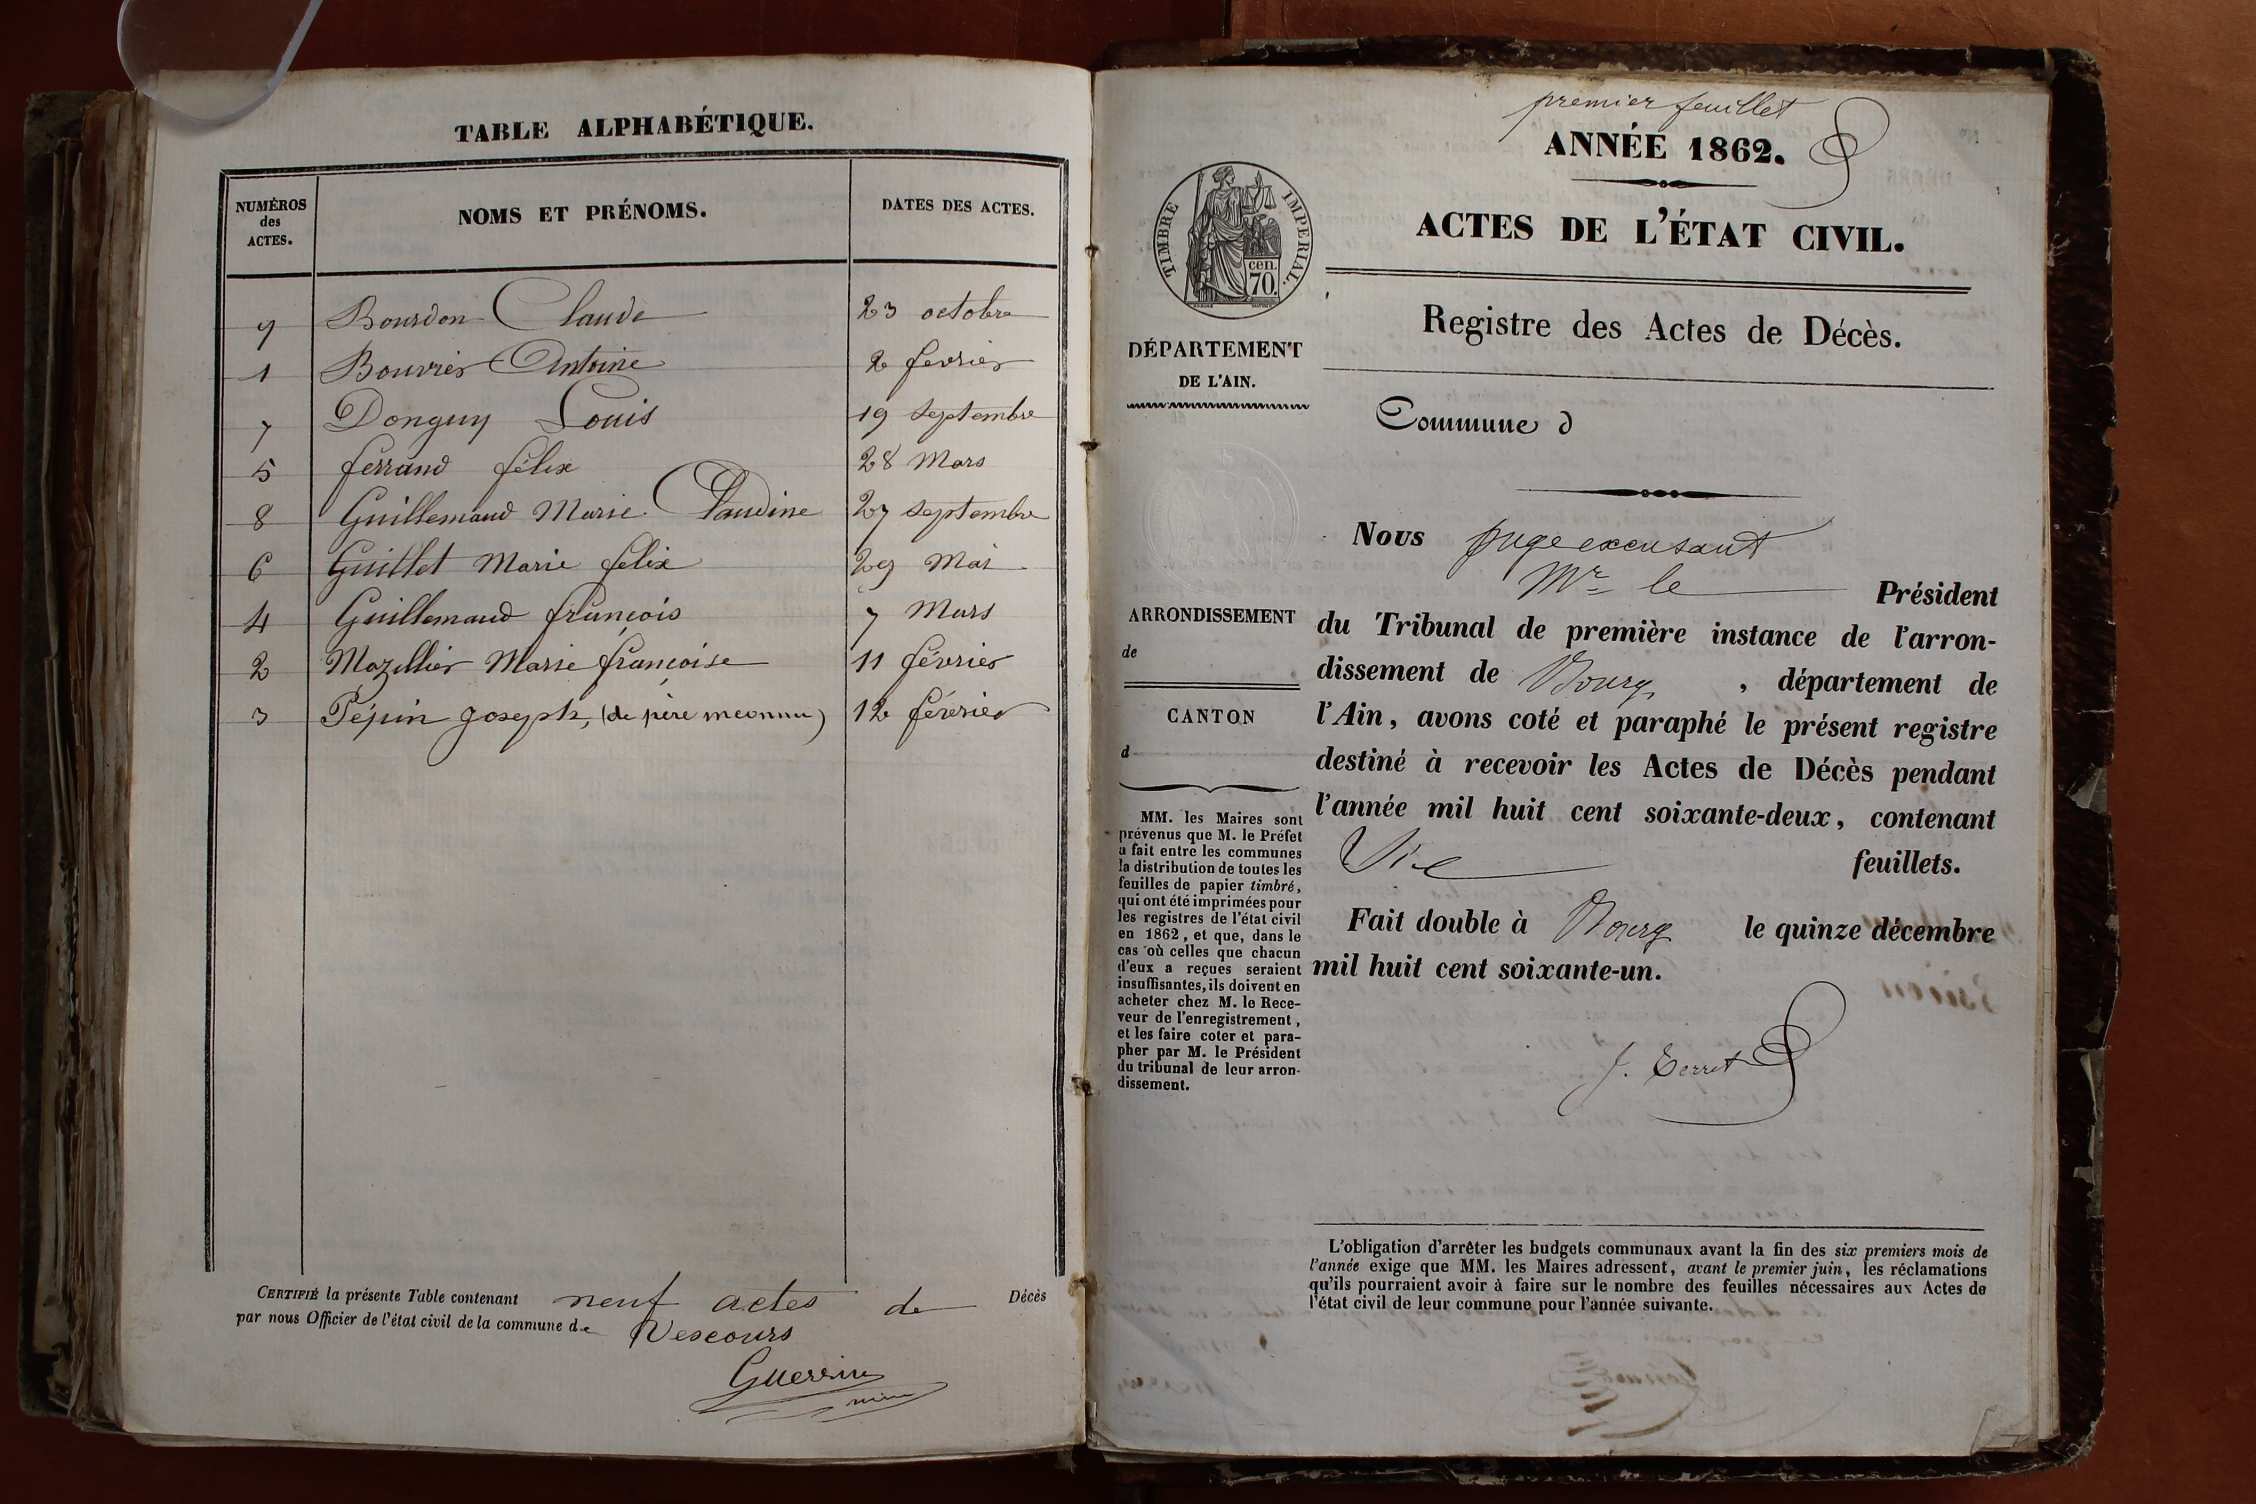 TABLE ALPHABÉTIQUE.
NUMÉROS des ACTES. NOMS ET PRÉNOMS. DATES DES ACTES.
9 Bourdon Claude 23 octobre
1 Bouvier Antoine 2 fevrier
7 Donguy Louis 19 septembre
5 ferrand félix 28 Mars
8 Guillemaud Marie Claudine 27 septembre
6 Guillet Marie felix 29 Mai
4 Guillemaud françois 7 Mars
2 Mazillier Marie françoise 11 février
3 Pépin joseph, (de père inconnu) 12 février
CERTIFIÉ la présente Table contenant neuf actes de Décès
par nous Officier de l'état civil de la commune de Vescours
Guerrin
premier feuillet
ANNÉE 1862.
TIMBRE IMPÉRIAL.
cen.
70.
ACTES DE L'ÉTAT CIVIL.
Registre des Actes de Décès.
DÉPARTEMENT
DE L'AIN.
Commune d
ARRONDISSEMENT
de
CANTON
d
MM. les Maires sont
prévenus que M. le Préfet
a fait entre les communes
la distribution de toutes les
feuilles de papier timbré,
qui ont été imprimées pour
les registres de l'état civil
en 1862, et que, dans le
cas où celles que chacun
d'eux a reçues seraient
insuffisantes, ils doivent en
acheter chez M. le Rece-
veur de l'enregistrement,
et les faire coter et para-
pher par M. le Président
du tribunal de leur arron-
dissement.
Nous juge excusant
Mr le Président
du Tribunal de première instance de l'arron-
dissement de Bourg, département de
l'Ain, avons coté et paraphé le présent registre
destiné à recevoir les Actes de Décès pendant
l'année mil huit cent soixante-deux, contenant
Six feuillets.
Fait double à Bourg le quinze décembre
mil huit cent soixante-un.
J. Terret
L'obligation d'arrêter les budgets communaux avant la fin des six premiers mois de
l'année exige que MM. les Maires adressent, avant le premier juin, les réclamations
qu'ils pourraient avoir à faire sur le nombre des feuilles nécessaires aux Actes de
l'état civil de leur commune pour l'année suivante.